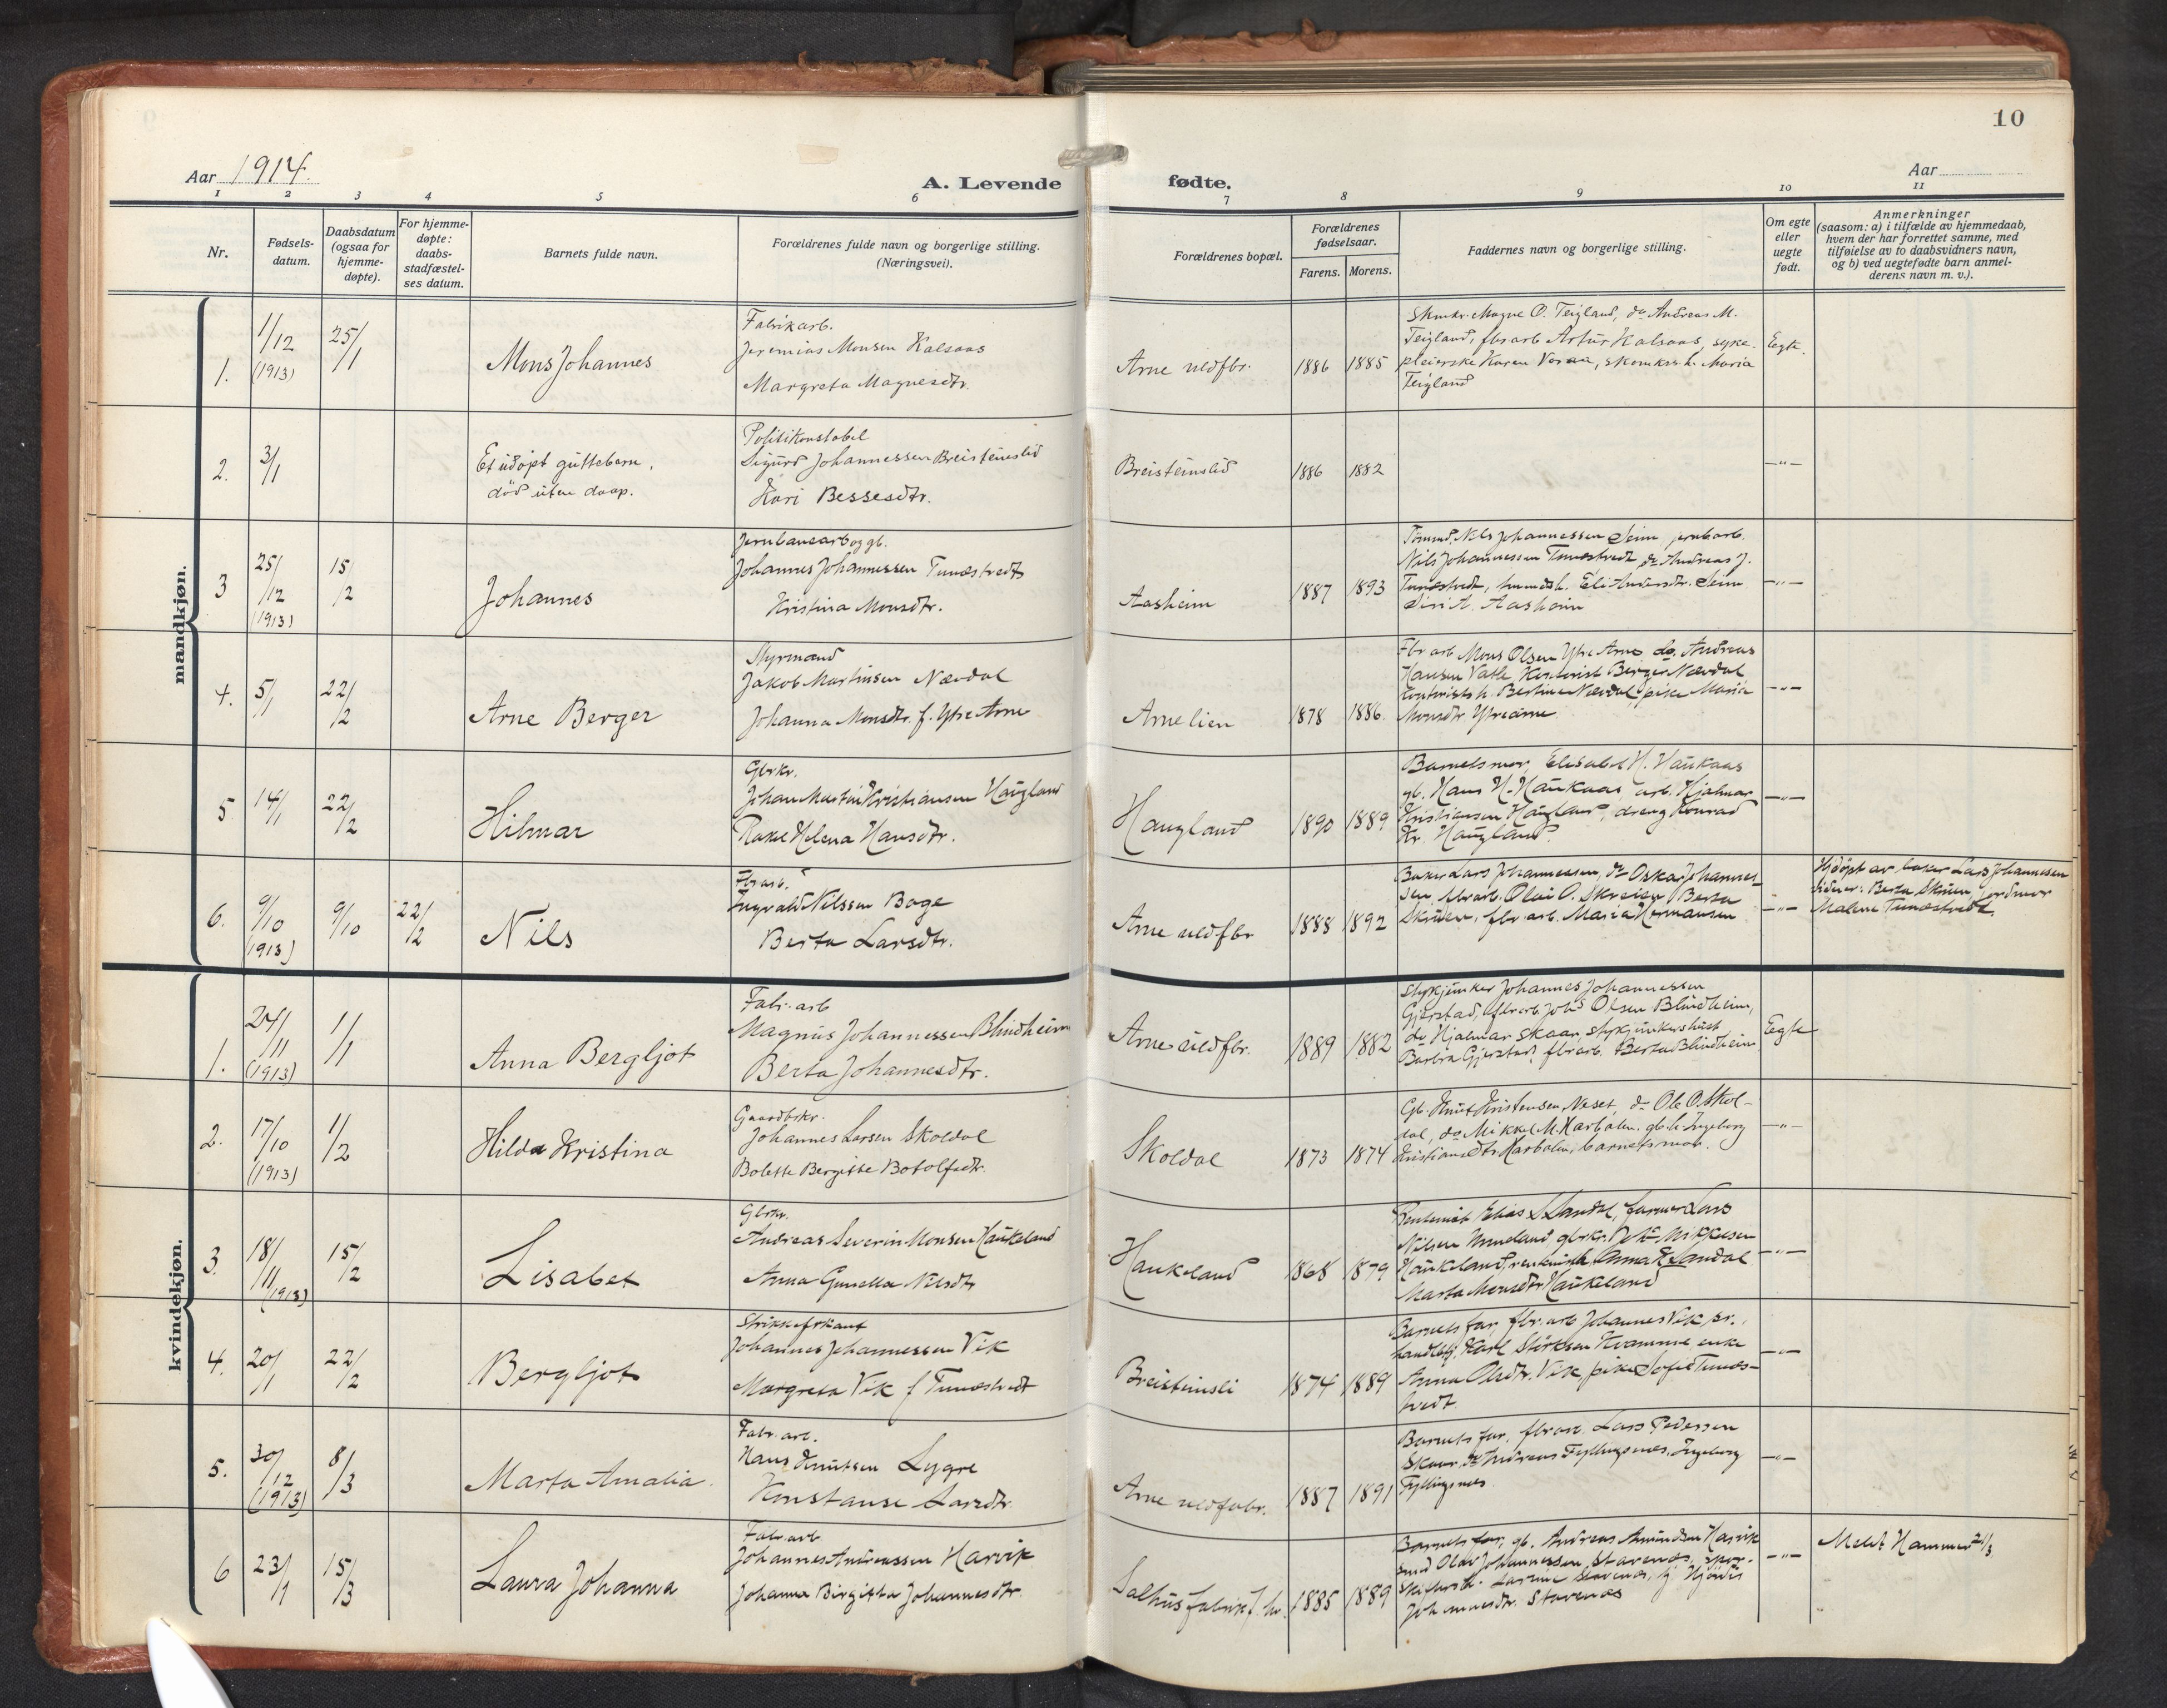 10
Aar 1914.
A. Levende
fødte.
Aar
1 2 3 4 5 6 7 8 9 10 11
Nr.
Fødsels-
datum.
Daabsdatum
(ogsaa for
hjemme-
døpte).
For hjemme-
døpte:
daabs-
stadfæstel-
ses datum.
Barnets fulde navn.
Forældrenes fulde navn og borgerlige stilling.
(Næringsvei).
Forældrenes bopæl.
Forældrenes
fødselsaar.
Farens. Morens.
Faddernes navn og borgerlige stilling.
Om egte
eller
uegte
født.
Anmerkninger
(saasom: a) i tilfælde av hjemmedaab,
hvem der har forrettet samme, med
tilføielse av to daabsvidners navn,
og b) ved uegtefødte barn anmel-
derens navn m. v.).
mandkjøn.
1.
1/12
(1913)
25/1
Mons Johannes
Fabrikarb.
Jeremias Monsen Kalsaas
Margreta Magnesdtr.
Arne uldfbr.
1886 1885
Skmkr. Magne O. Teigland, do Andreas M.
Teigland, fbrarb Artur Kalsaas, syke-
pleierske Karen Vosaa, skomkrs h. Maria
Teigland
Egte.
2.
3/1
Et udøpt guttebarn,
død uten daap.
Politikonstabel
Sigurd Johannessen Breisteinslid
Kari Bessesdtr.
Breisteinslid
1886 1882
—"—
3
25/12
(1913)
15/2
Johannes
Jernbanearb og gb.
Johannes Johannessen Tunestvedt
Kristina Monsdtr.
Aasheim
1887 1893
Tømmd. Nils Johannessen Seim, jernbarb.
Nils Johannessen Tunestvedt, do Andreas J.
Tunestvedt, tmmds h. Eli Andersdtr. Seim
Siri A. Aasheim
—"—
4.
5/1
22/2
Arne Berger
Styrmand
Jakob Martinsen Nævdal
Johanna Monsdtr. f. Ytre Arne
Arnelien
1878 1886.
Fbrarb Mons Olsen Ytre Arne, do. Andreas
Hansen Vatle, Kontorist Berger Nævdal
kontorists h. Bertine Nævdal, pike Maria
Monsdtr Ytrearne
—"—
5
14/1
22/2
Hilmar
Gbrkr.
Johan Martin Kristiansen Haugland
Rakel Helena Hansdtr.
Haugland
1890 1889
Barnets mor, Elisabet H. Haukaas
gb. Hans H. Haukaas arb. Hjalmar
Kristiansen Haugland, dreng Konrad
Kr. Haugland.
—"—
6.
9/10
(1913)
9/10
22/2
Nils
Fbrarb.
Ingvald Nilssen Boge
Berta Larsdtr.
Arne uldfbr
1888 1892
Baker Lars Johannessen, do Oskar Johannes-
sen, fbrarb. Olai O. Skreien, Berta
Skreien, fbrarb. Maria Hermansen
—"—
Hjdøpt av baker Lars Johannesen
vidner: Berta Skreien, jordmor
Malene Tunestvedt.
kvindekjøn.
1.
24/11
(1913)
1/1
Anna Bergljot
Fabr.arb
Magnus Johannessen Blindheim
Berta Johannesdtr.
Arne uldfbr.
1889 1882
Styrkjunker Johannes Johannessen
Gjerstad, fbrarb Johs Olsen Blindheim,
do Hjalmar Skaar, styrkjunkers hust
Barbra Gjerstad, fbrarb. Berta Blindheim
Egte
2.
17/10
(1913)
1/2
Hilda Kristina
Gaardbrkr.
Johannes Larsen Skoldal
Bolette Bergitte Botolfsdtr.
Skoldal
1873 1874
Gb. Knut Kristensen Neset, do Ole O. Skol-
dal, do Mikkel M. Harbolen, gb. h. Ingeborg
Kristiansdtr Harbolen, barnets mor.
—"—
3.
18/11
(1913)
15/2
Lisabet
Gbrkr.
Andreas Severin Monsen Haukeland
Anna Gurella Nilsdtr
Haukeland
1868 1879
Elias S. Landal, Lars
Nilsen gbrkr. Mikkelsen
Haukeland, Anna Landal
Marta Monsdtr Haukeland
—"—
4.
20/1
22/2
Bergljot
Strikkefrkant
Johannes Johannessen Vik
Margreta Vik f Tunestvedt
Breisteinsli
1874 1889
Barnets far, fbr.arb Johannes Vik sr.,
handelsbj. Karl Størksen Kvamme enke
Anna Olsdtr. Vik, pike Sofie Tunes-
tvedt
—"—
5.
30/12
(1913)
8/3
Marta Amalia.
Fabr.arb.
Hans Knutsen Lygre
Konstanse Larsdtr.
Arne uldfabr.
1887 1891
Barnets far, fbrarb. Lars Pedersen
Skaar, do Andreas Fyllingsnes, Ingeborg
Fyllingsnes
—"—
6
23/1
15/3
Laura Johanna
Fabr.arb
Johannes Andreassen Harvik
Johanna Birgitta Johannesdtr.
Salhus fabrik f. hr.
1885 1889
Barnets far, gb. Andreas Amundsen Harvik
smed Olav Johannessen Stavenes,
Stavenes, Hjørdis
Johannesdtr. Stavenes
—"—
Meldt Hammer 21/3